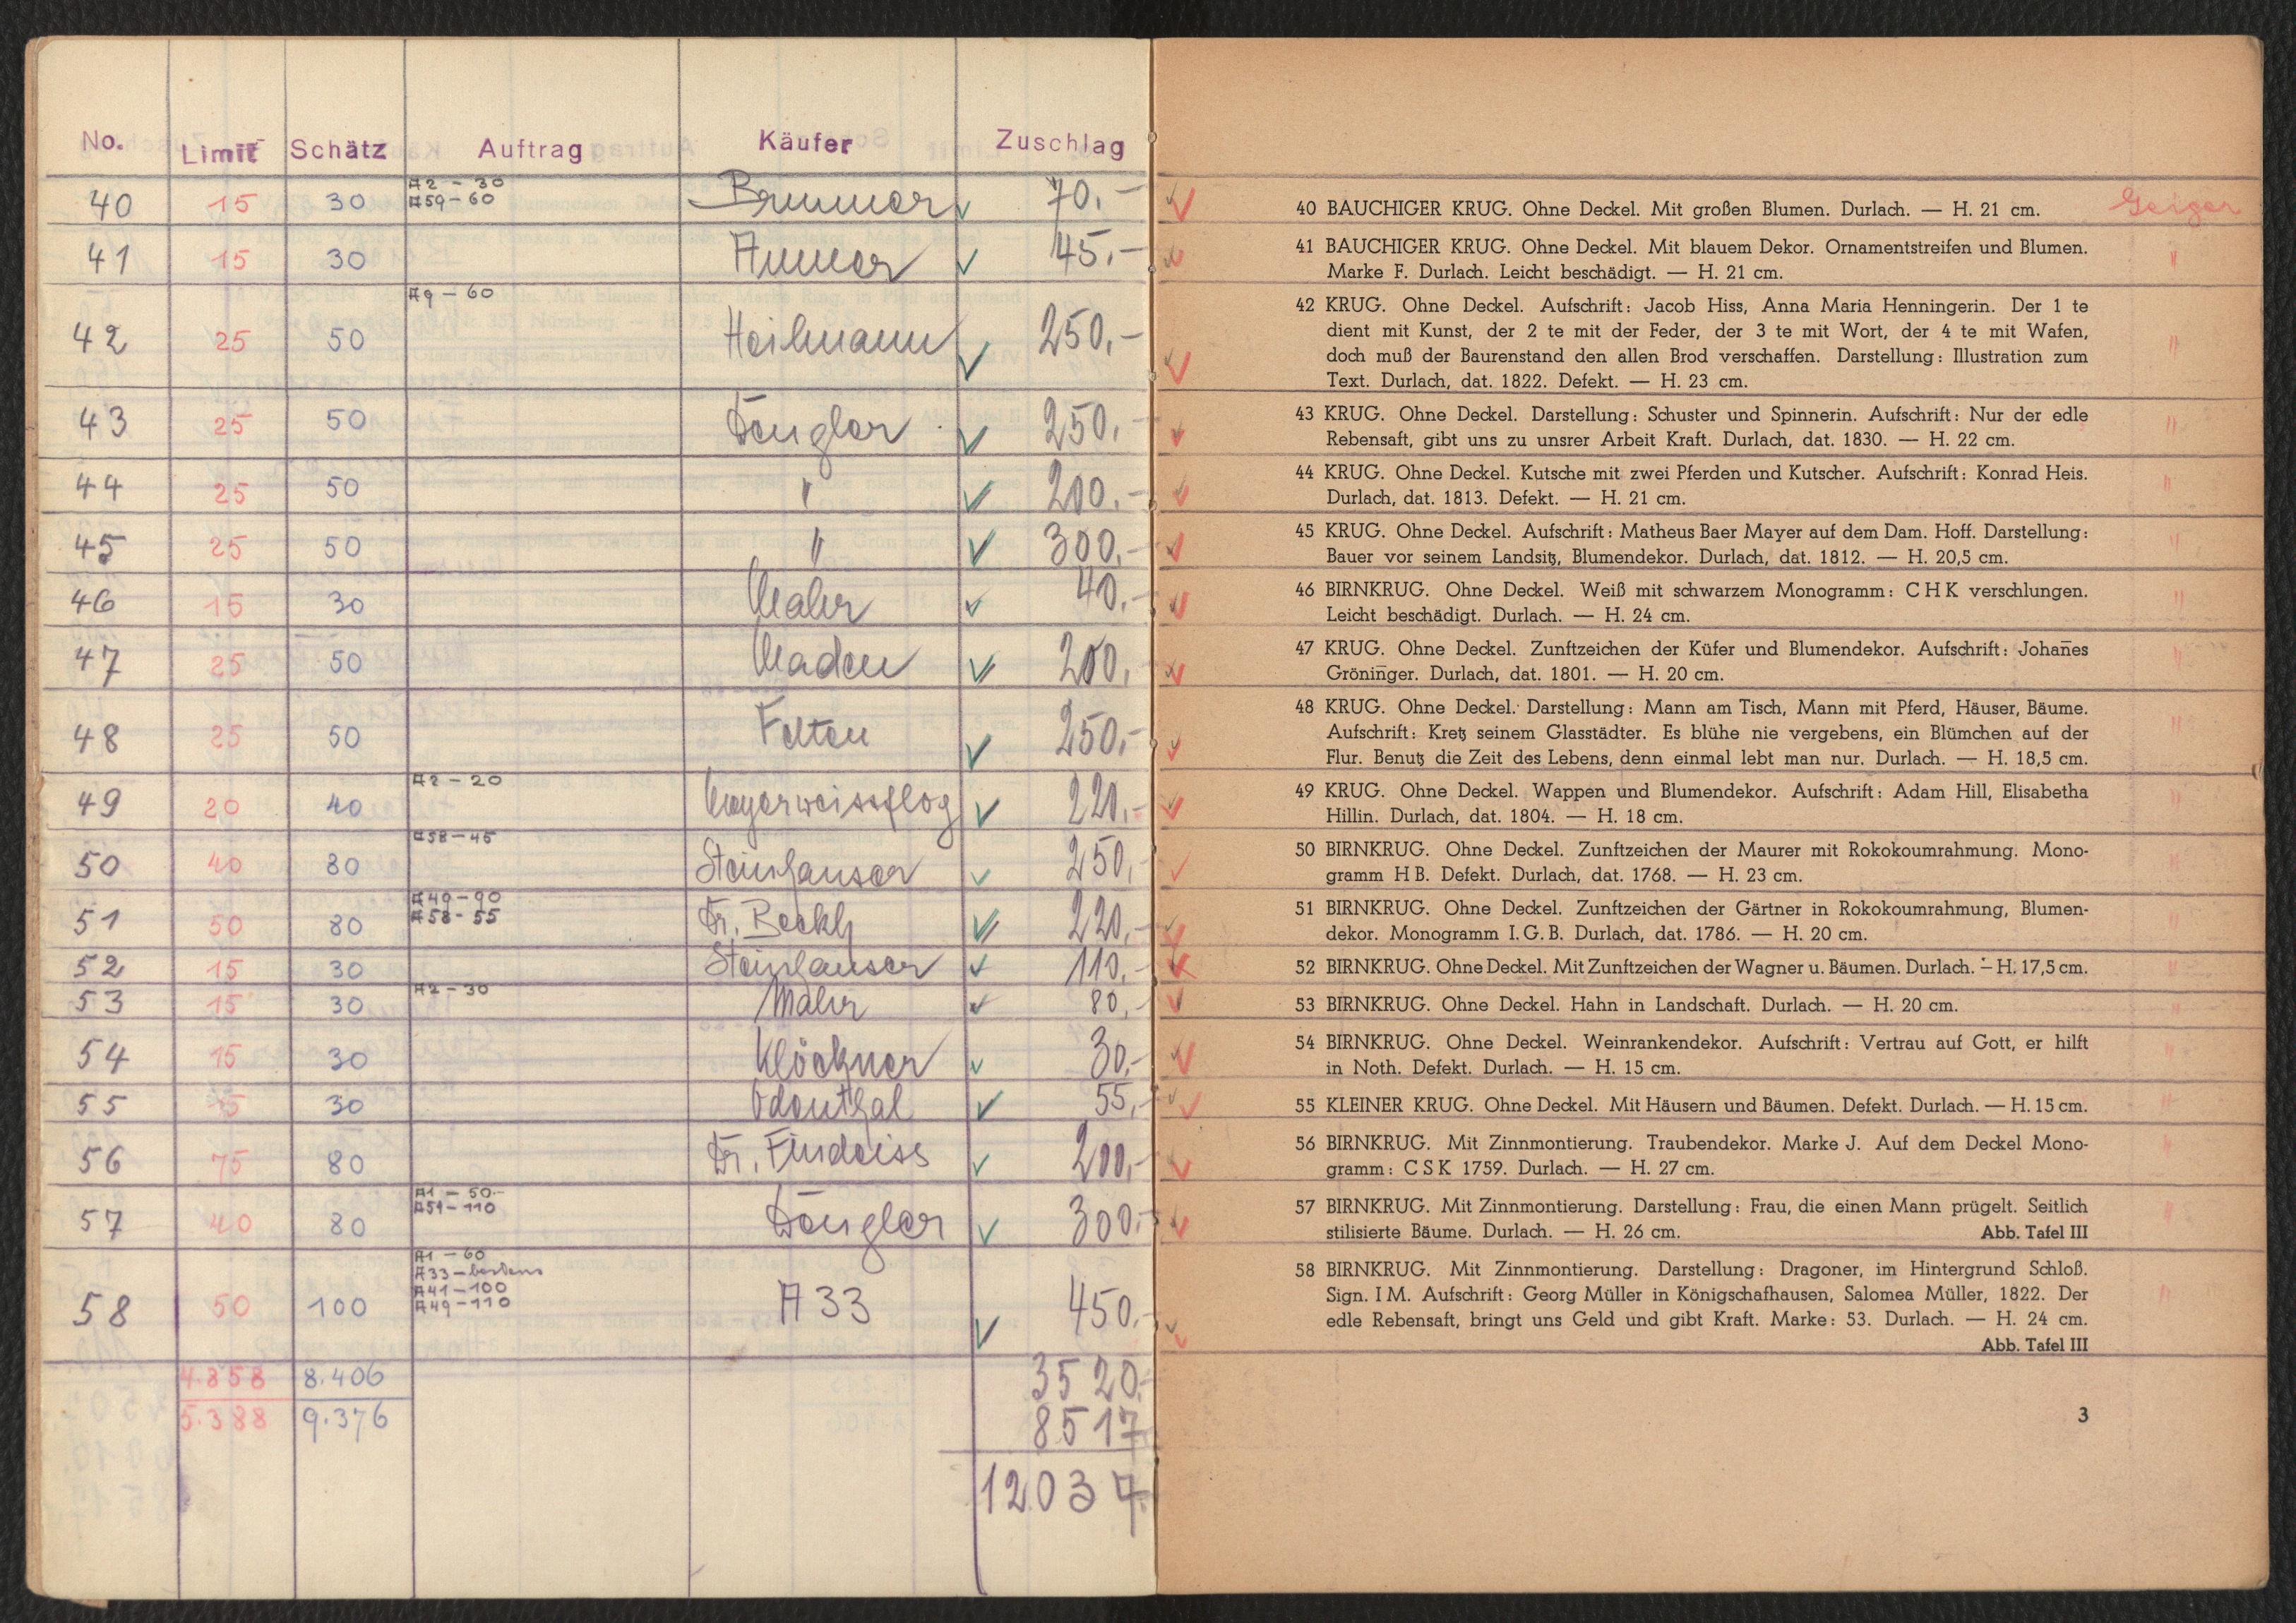 No. Limit Schätz Auftrag Käufer Zuschlag
40 15 30 A2 - 30 A59 - 60 70.-
41 15 30 Ammer 45.-
42 25 50 A9 - 60 Heilmann 250.-
43 25 50 Dengler 250.-
44 25 50 " 200.-
45 25 50 " 300.-
46 15 30 Mahr 40.-
47 25 50 Maden 200.
48 25 50 Felten 250.-
49 20 40 A2 - 20 Mayerweissflog 220.-
50 40 80 A58 - 45 Steinhauser 250.
51 50 80 A49 - 90 A58 - 55 Dr. Beckh 220.-
52 15 30 Steinhauser 110.-
53 15 30 A2 - 30 Mahr 80.-
54 15 30 Klöckner 30.-
55 15 30 Odenthal 55.-
56 75 80 Dr. Findeiss 200.-
57 40 80 A1 - 50.- A51 - 110 Dengler 300.-
58 50 100 A1 - 60 A33 - bestens A41 - 100 A49 - 110 A 33 450.-
4.858 8.406 3520.-
5.388 9.376 8517
12037.-
40 BAUCHIGER KRUG. Ohne Deckel. Mit großen Blumen. Durlach. — H. 21 cm. Geiger
41 BAUCHIGER KRUG. Ohne Deckel. Mit blauem Dekor. Ornamentstreifen und Blumen. "
Marke F. Durlach. Leicht beschädigt. — H. 21 cm.
42 KRUG. Ohne Deckel. Aufschrift: Jacob Hiss, Anna Maria Henningerin. Der 1 te
dient mit Kunst, der 2 te mit der Feder, der 3 te mit Wort, der 4 te mit Wafen, "
doch muß der Baurenstand den allen Brod verschaffen. Darstellung: Illustration zum
Text. Durlach, dat. 1822. Defekt. — H. 23 cm.
43 KRUG. Ohne Deckel. Darstellung: Schuster und Spinnerin. Aufschrift: Nur der edle "
Rebensaft, gibt uns zu unsrer Arbeit Kraft. Durlach, dat. 1830. — H. 22 cm.
44 KRUG. Ohne Deckel. Kutsche mit zwei Pferden und Kutscher. Aufschrift: Konrad Heis. "
Durlach, dat. 1813. Defekt. — H. 21 cm.
45 KRUG. Ohne Deckel. Aufschrift: Matheus Baer Mayer auf dem Dam. Hoff. Darstellung: "
Bauer vor seinem Landsitz, Blumendekor. Durlach, dat. 1812. — H. 20,5 cm.
46 BIRNKRUG. Ohne Deckel. Weiß mit schwarzem Monogramm: C H K verschlungen. "
Leicht beschädigt. Durlach. — H. 24 cm.
47 KRUG. Ohne Deckel. Zunftzeichen der Küfer und Blumendekor. Aufschrift: Johan̄es "
Grönin̄ger. Durlach, dat. 1801. — H. 20 cm.
48 KRUG. Ohne Deckel. Darstellung: Mann am Tisch, Mann mit Pferd, Häuser, Bäume. "
Aufschrift: Kretz seinem Glasstädter. Es blühe nie vergebens, ein Blümchen auf der
Flur. Benutz die Zeit des Lebens, denn einmal lebt man nur. Durlach. — H. 18,5 cm.
49 KRUG. Ohne Deckel. Wappen und Blumendekor. Aufschrift: Adam Hill, Elisabetha "
Hillin. Durlach, dat. 1804. — H. 18 cm.
50 BIRNKRUG. Ohne Deckel. Zunftzeichen der Maurer mit Rokokoumrahmung. Mono- "
gramm H B. Defekt. Durlach, dat. 1768. — H. 23 cm.
51 BIRNKRUG. Ohne Deckel. Zunftzeichen der Gärtner in Rokokoumrahmung, Blumen- "
dekor. Monogramm I. G. B. Durlach, dat. 1786. — H. 20 cm.
52 BIRNKRUG. Ohne Deckel. Mit Zunftzeichen der Wagner u. Bäumen. Durlach. — H. 17,5 cm. "
53 BIRNKRUG. Ohne Deckel. Hahn in Landschaft. Durlach. — H. 20 cm. "
54 BIRNKRUG. Ohne Deckel. Weinrankendekor. Aufschrift: Vertrau auf Gott, er hilft "
in Noth. Defekt. Durlach. — H. 15 cm.
55 KLEINER KRUG. Ohne Deckel. Mit Häusern und Bäumen. Defekt. Durlach. — H. 15 cm. "
56 BIRNKRUG. Mit Zinnmontierung. Traubendekor. Marke J. Auf dem Deckel Mono- "
gramm: C S K 1759. Durlach. — H. 27 cm.
57 BIRNKRUG. Mit Zinnmontierung. Darstellung: Frau, die einen Mann prügelt. Seitlich "
stilisierte Bäume. Durlach. — H. 26 cm. Abb. Tafel III
58 BIRNKRUG. Mit Zinnmontierung. Darstellung: Dragoner, im Hintergrund Schloß.
Sign. I M. Aufschrift: Georg Müller in Königschafhausen, Salomea Müller, 1822. Der "
edle Rebensaft, bringt uns Geld und gibt Kraft. Marke: 53. Durlach. — H. 24 cm.
Abb. Tafel III
3